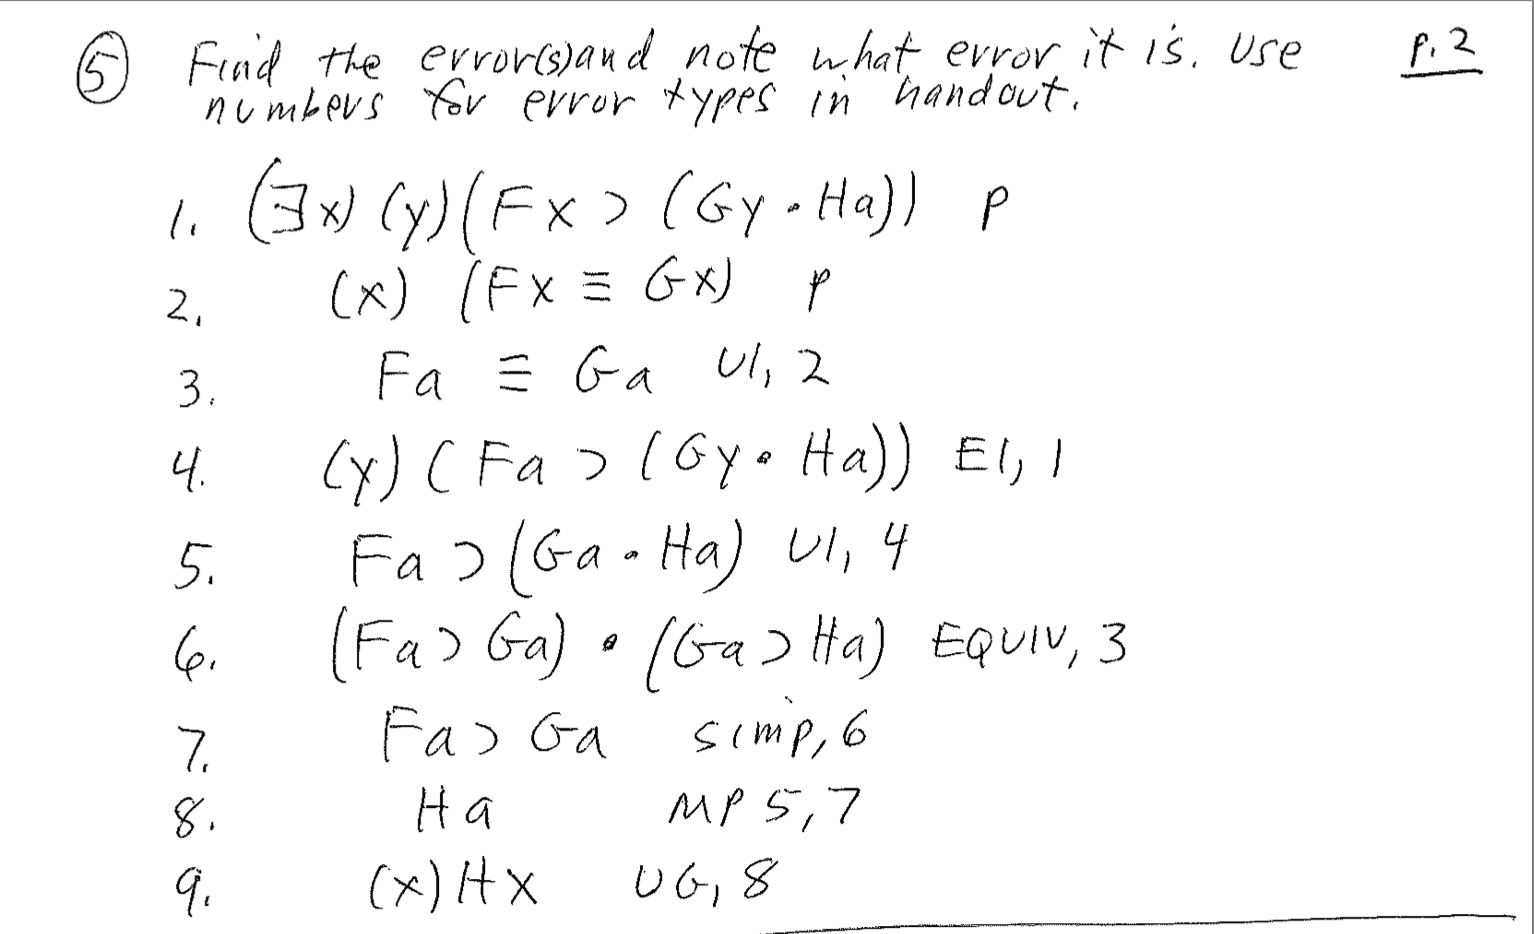 ⑤ Find the error(s) and note what error it is. Use p. 2
numbers for error types in handout.
1. (∃x) (y) (Fx ⊃ (Gy · Ha)) P
2. (x) (Fx ≡ Gx) P
3. Fa ≡ Ga UI, 2
4. (y) (Fa ⊃ (Gy · Ha)) EI, 1
5. Fa ⊃ (Ga · Ha) UI, 4
6. (Fa ⊃ Ga) · (Ga ⊃ Ha) EQUIV, 3
7. Fa ⊃ Ga simp, 6
8. Ha MP 5, 7
9. (x) Hx UG, 8